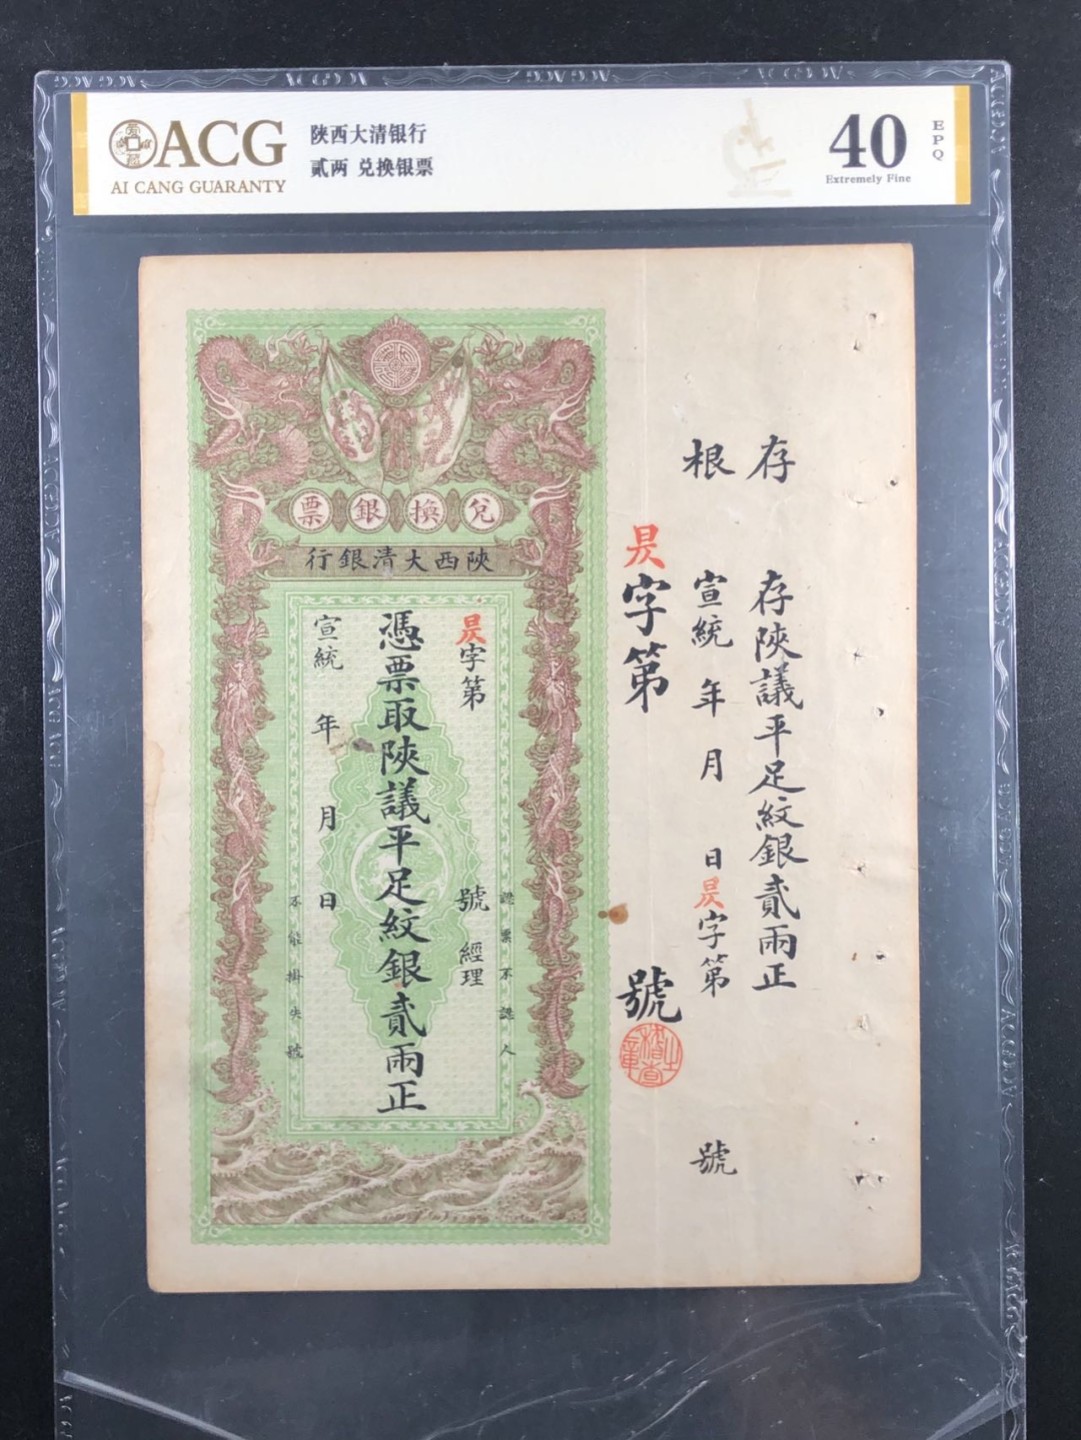 ACG
AI CANG GUARANTY
陕西大清银行
贰两 兑换银票
40
Extremely Fine
EPQ
兌換銀票
陝西大清銀行
昃字第 號 經理
憑票取陝議平足紋銀貳兩正
宣統 年 月 日
認票不認人
不能掛失號
存根
存陝議平足紋銀貳兩正
宣統 年 月 日昃字第 號
昃字第 號